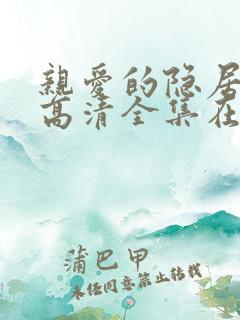 親愛的隐居
高清全集在
蒲巴甲
未任同意禁止转载